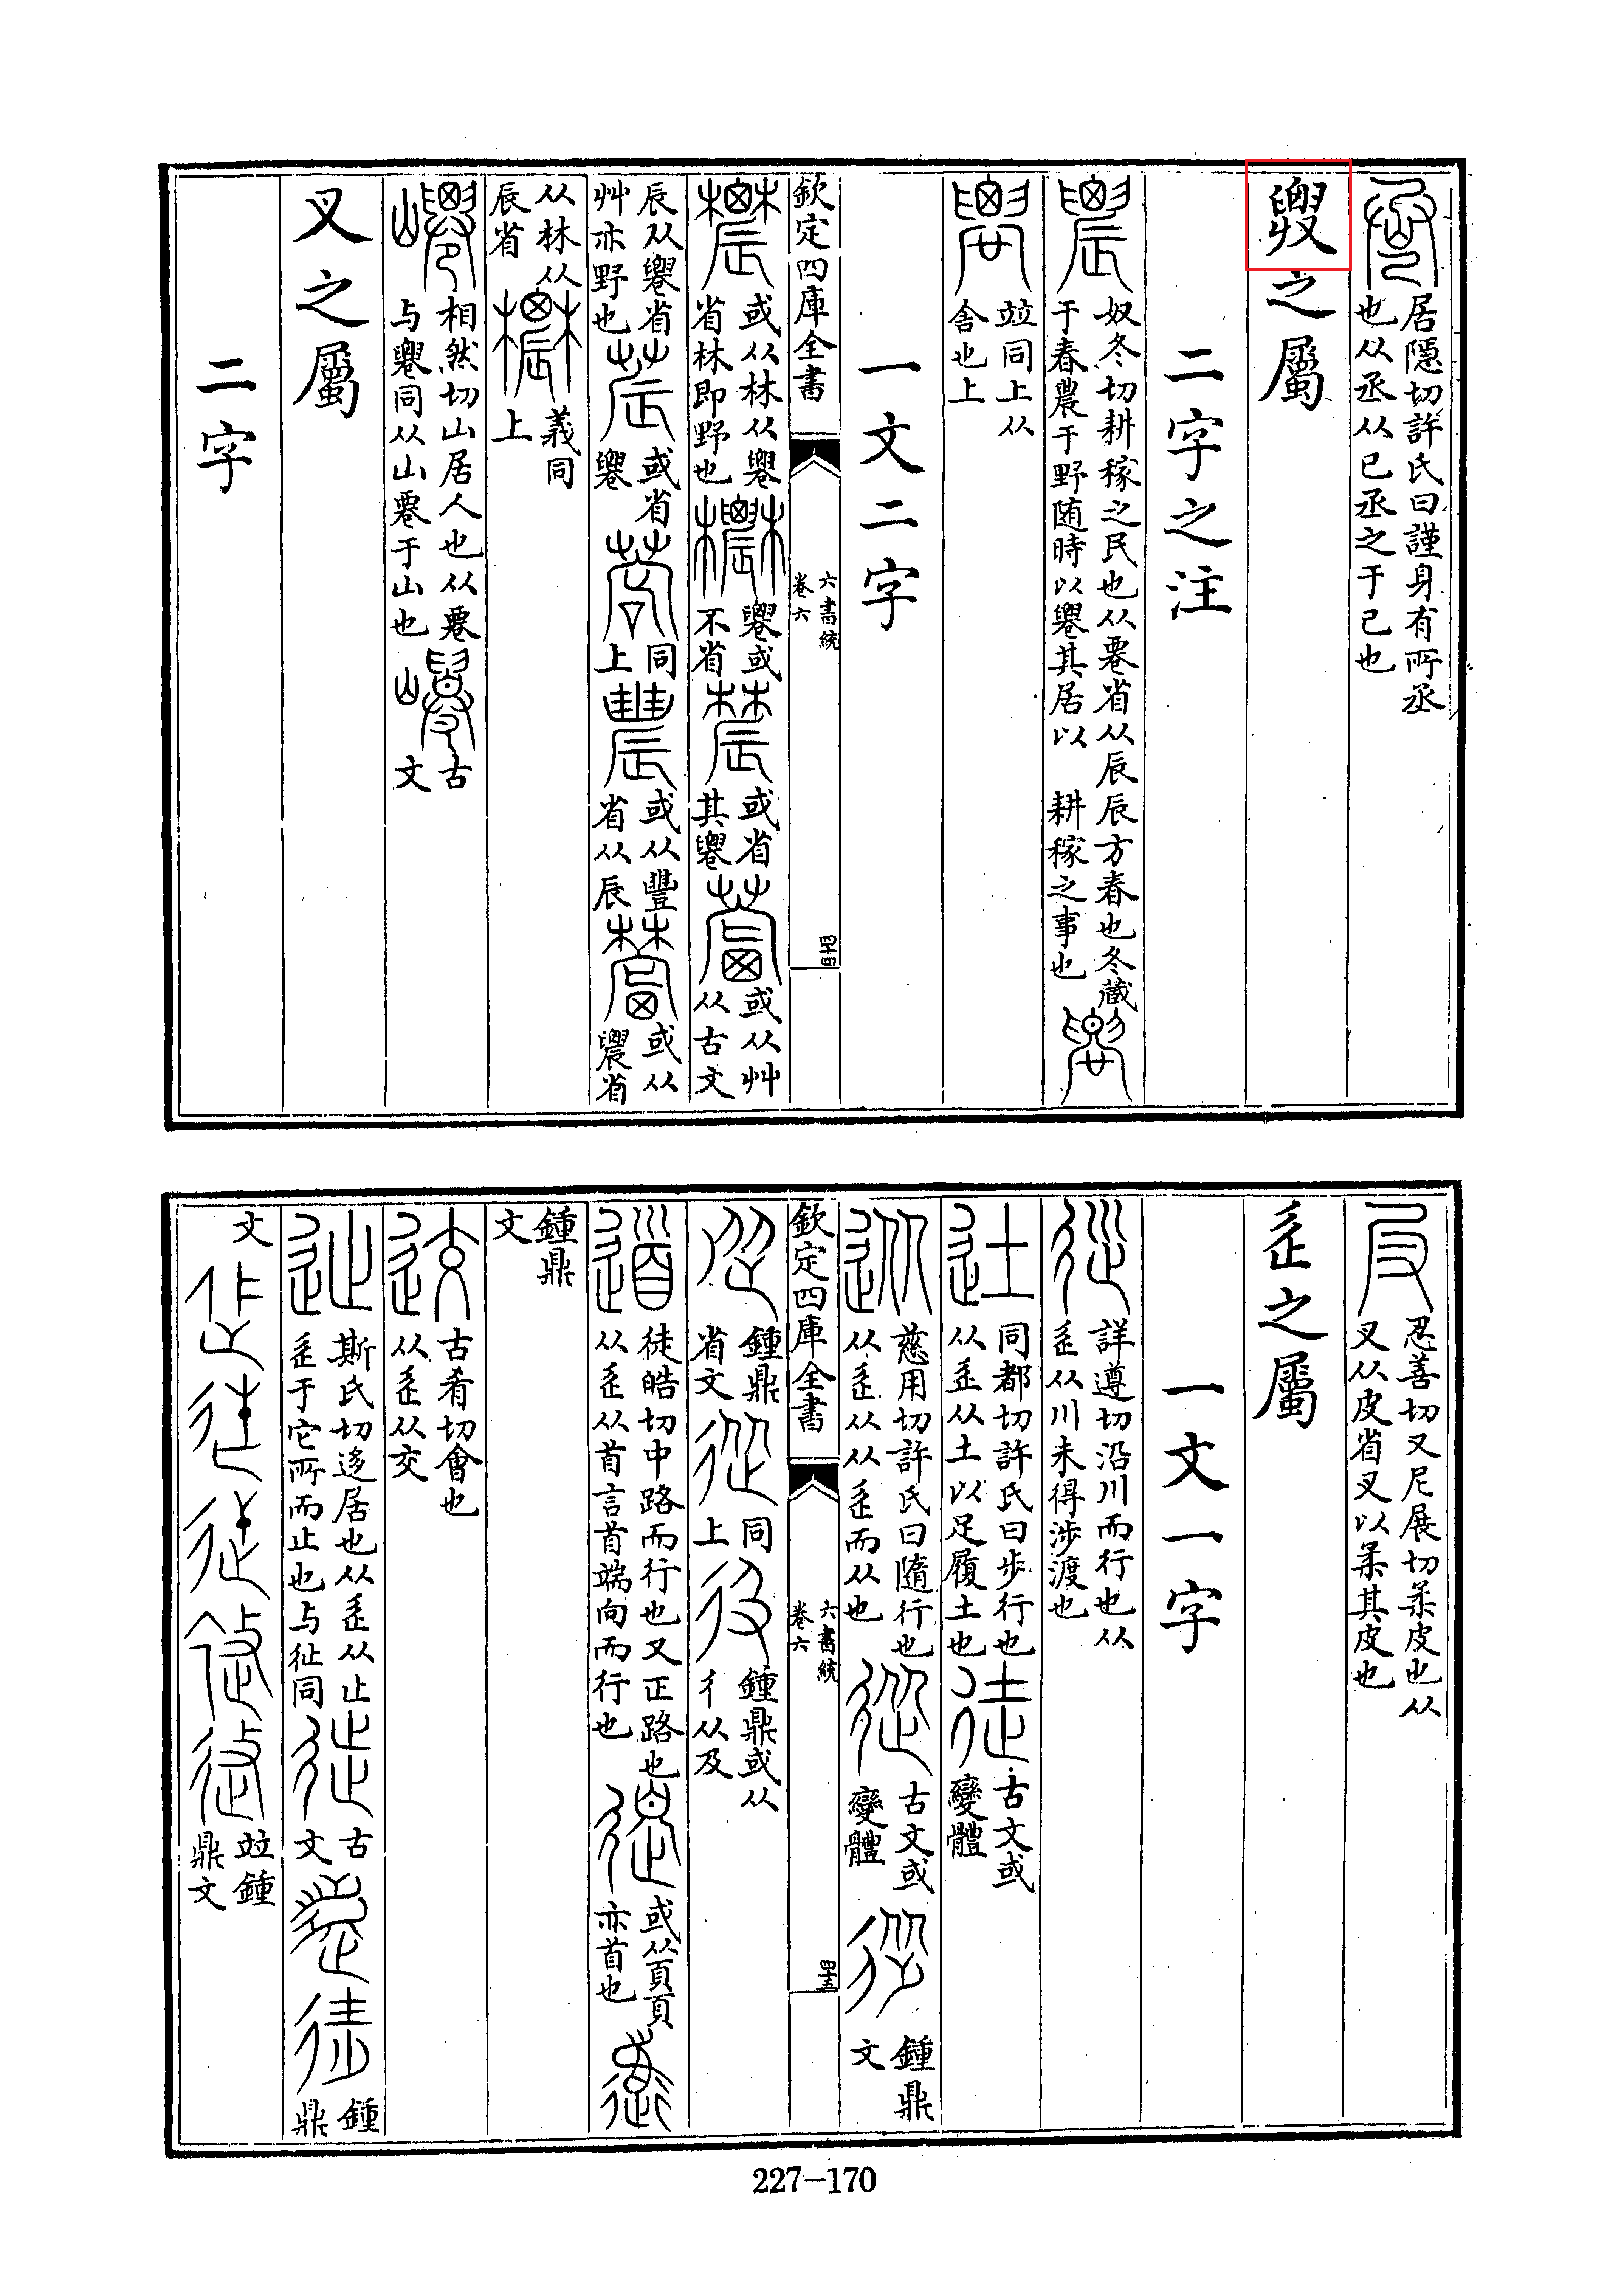 居隱切許氏曰謹身有所丞
也从丞从己丞之于己也
之屬
二字之注
奴冬切耕稼之民也从䙴省从辰辰方春也冬藏
于春農于野随時以䙴其居以 耕稼之事也
竝同上从
舎也上
一文二字
欽定四庫全書
六書統
卷六
四十四
或从林从䙴
省林即野也
䙴或
不省
或省
其䙴
或从艸
从古文
辰从䙴省
艸亦野也
或省
䙴
同
上
或从豐
省从辰
或从
農省
从林从
辰省
義同
上
相然切山居人也从䙴
与䙴同从山䙴于山也
古
文
㕚之屬
二字
忍善切又尼展切柔皮也从
叉从皮省叉以柔其皮也
辵之屬
一文一字
詳遵切沿川而行也从
辵从川未得涉渡也
同都切許氏曰步行也
从辵从土以足履土也
古文或
變體
慈用切許氏曰隨行也
从辵从从辵而从也
古文或
變體
鍾鼎
文
欽定四庫全書
六書統
卷六
四十五
鍾鼎
省文
同
上
鍾鼎或从
彳从及
徒皓切中路而行也又正路也
从辵从首言首端向而行也
或从頁頁
亦首也
鍾鼎
文
古肴切會也
从辵从交
斯氏切迻居也从辵从止
辵于它所而止也与徙同
古
文
鍾
鼎
文
竝鍾
鼎文
227-170